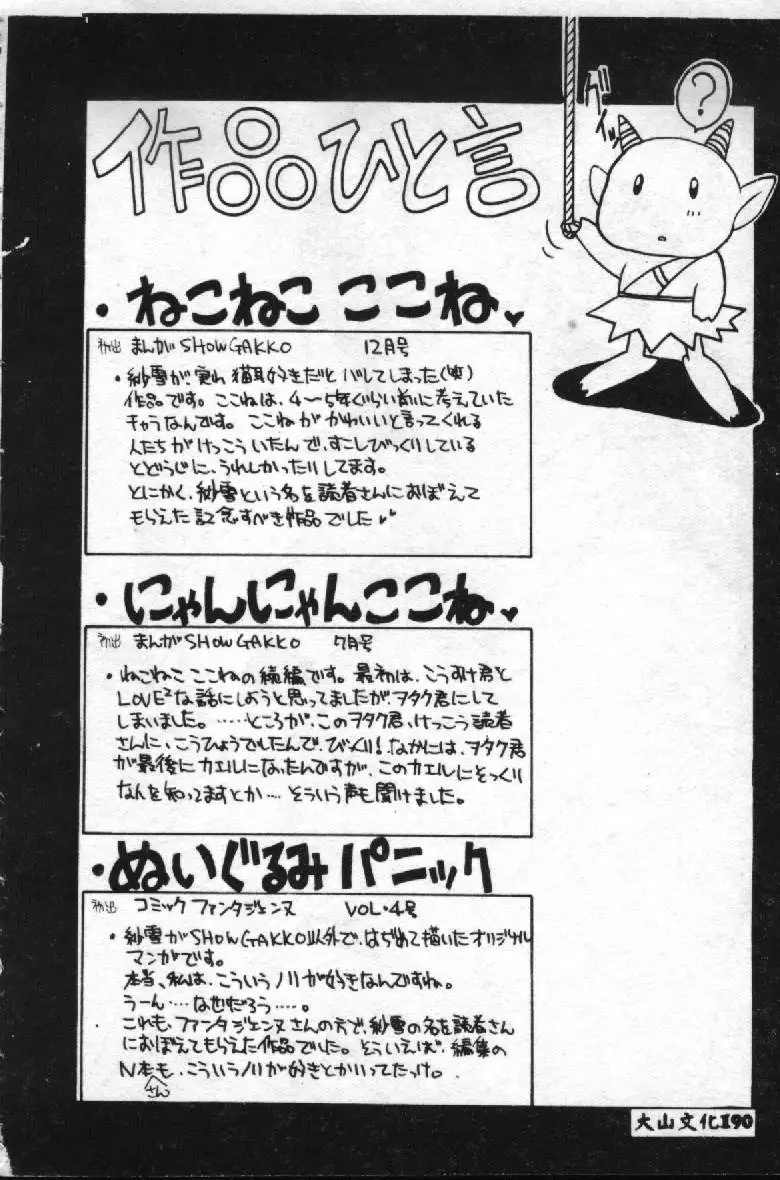 作品ひと言
?
グイッ
・ねこねこ ここね
初出 まんがSHOW GAKKO 12月号
・紗雪が、実は猫耳好きだとバレてしまった(笑)
作品です。ここねは、4～5年ぐらい前に考えていた
キャラなんです。ここねが かわいいと言ってくれる
人たちがけっこういたんで、すこしびっくりしている
とどうじに、うれしかったりしてます。
とにかく、紗雪という名を読者さんにおぼえて
もらえた記念すべき作品でした
・にゃんにゃんここね
初出 まんがSHOW GAKKO 7月号
・ねこねこ ここねの続編です。最初は、こうすけ君と
LOVE²な話にしようと思ってましたが、ヲタク君にして
しまいました。……ところが、このヲタク君、けっこう読者
さんに、こうひょうでしたんで、びっくり!なかには、ヲタク君
が最後にカエルになったんですが、このカエルにそっくり
なんを知ってますとか…。そういう声も聞けました。
・ぬいぐるみパニック
初出 コミック ファンタジェンヌ VOL・4号
・紗雪がSHOW GAKKO以外で、はじめて描いたオリジナル
マンガです。
本当、私は、こういうノリが好きなんですね。
うーん…なぜだろう……。
これも、ファンタジェンヌさんの方で、紗雪の名を読者さん
におぼえてもらえた作品でした。そういえば、編集の
N本さんも、こういうノリが好きとかいってたっけ。
大山文化190